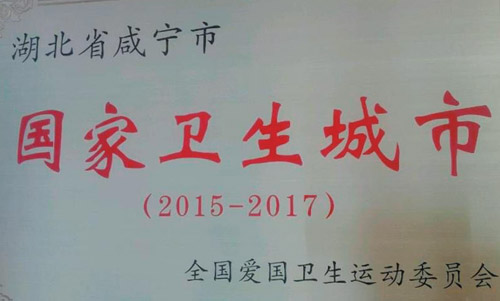 湖北省咸宁市
国家卫生城市
(2015-2017)
全国爱国卫生运动委员会